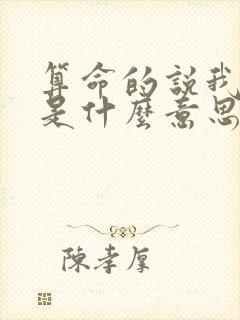 算命的說我
是什麼意思
陳孝厚